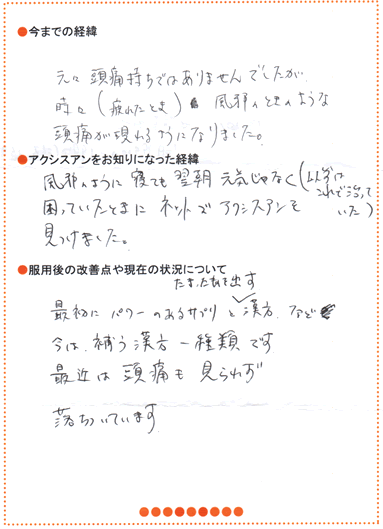 ●今までの経緯
元々頭痛持ちではありませんでしたが、
時々（疲れたとき）風邪のときのような
頭痛が現れるようになりました。
●アクシスアンをお知りになった経緯
風邪のように寝ても翌朝元気じゃなく（以前は
これで治って
いた）
困っていたときに ネットでアクシスアンを
見つけました。
●服用後の改善点や現在の状況について
たまったものを出す
最初に パワーのあるサプリと漢方、など
今は、補う漢方一種類です
最近は頭痛も見られず
落ちついています